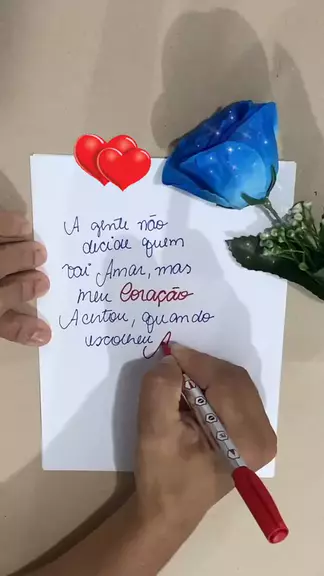 A gente não
decide quem
vai Amar, mas
meu Coração
Acertou, quando
escolheu A